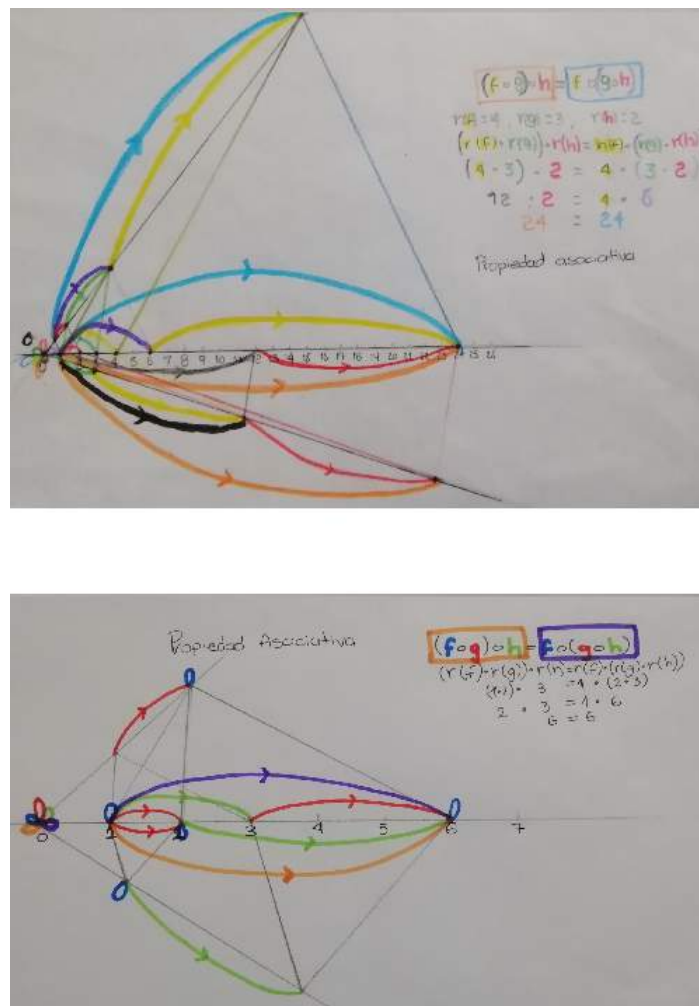 (f∘g)∘h = f∘(g∘h)
r(f)=4, r(g)=3, r(h)=2
(r(f)·r(g))·r(h)=r(f)·(r(g)·r(h)
(4·3)·2 = 4·(3·2)
12·2 = 4·6
24 = 24
Propiedad asociativa
0
4 5 6 7 8 9 10 11 12 13 14 15 16 17 18 19 20 21 22 23 24 25 26
Propiedad Asociativa
(f∘g)∘h=f∘(g∘h)
(r(f)·r(g))·r(h)=r(f)·(r(g)·r(h))
(1·2)·3 =1·(2·3)
2·3=1·6
6=6
0 1 2 3 4 5 6 7